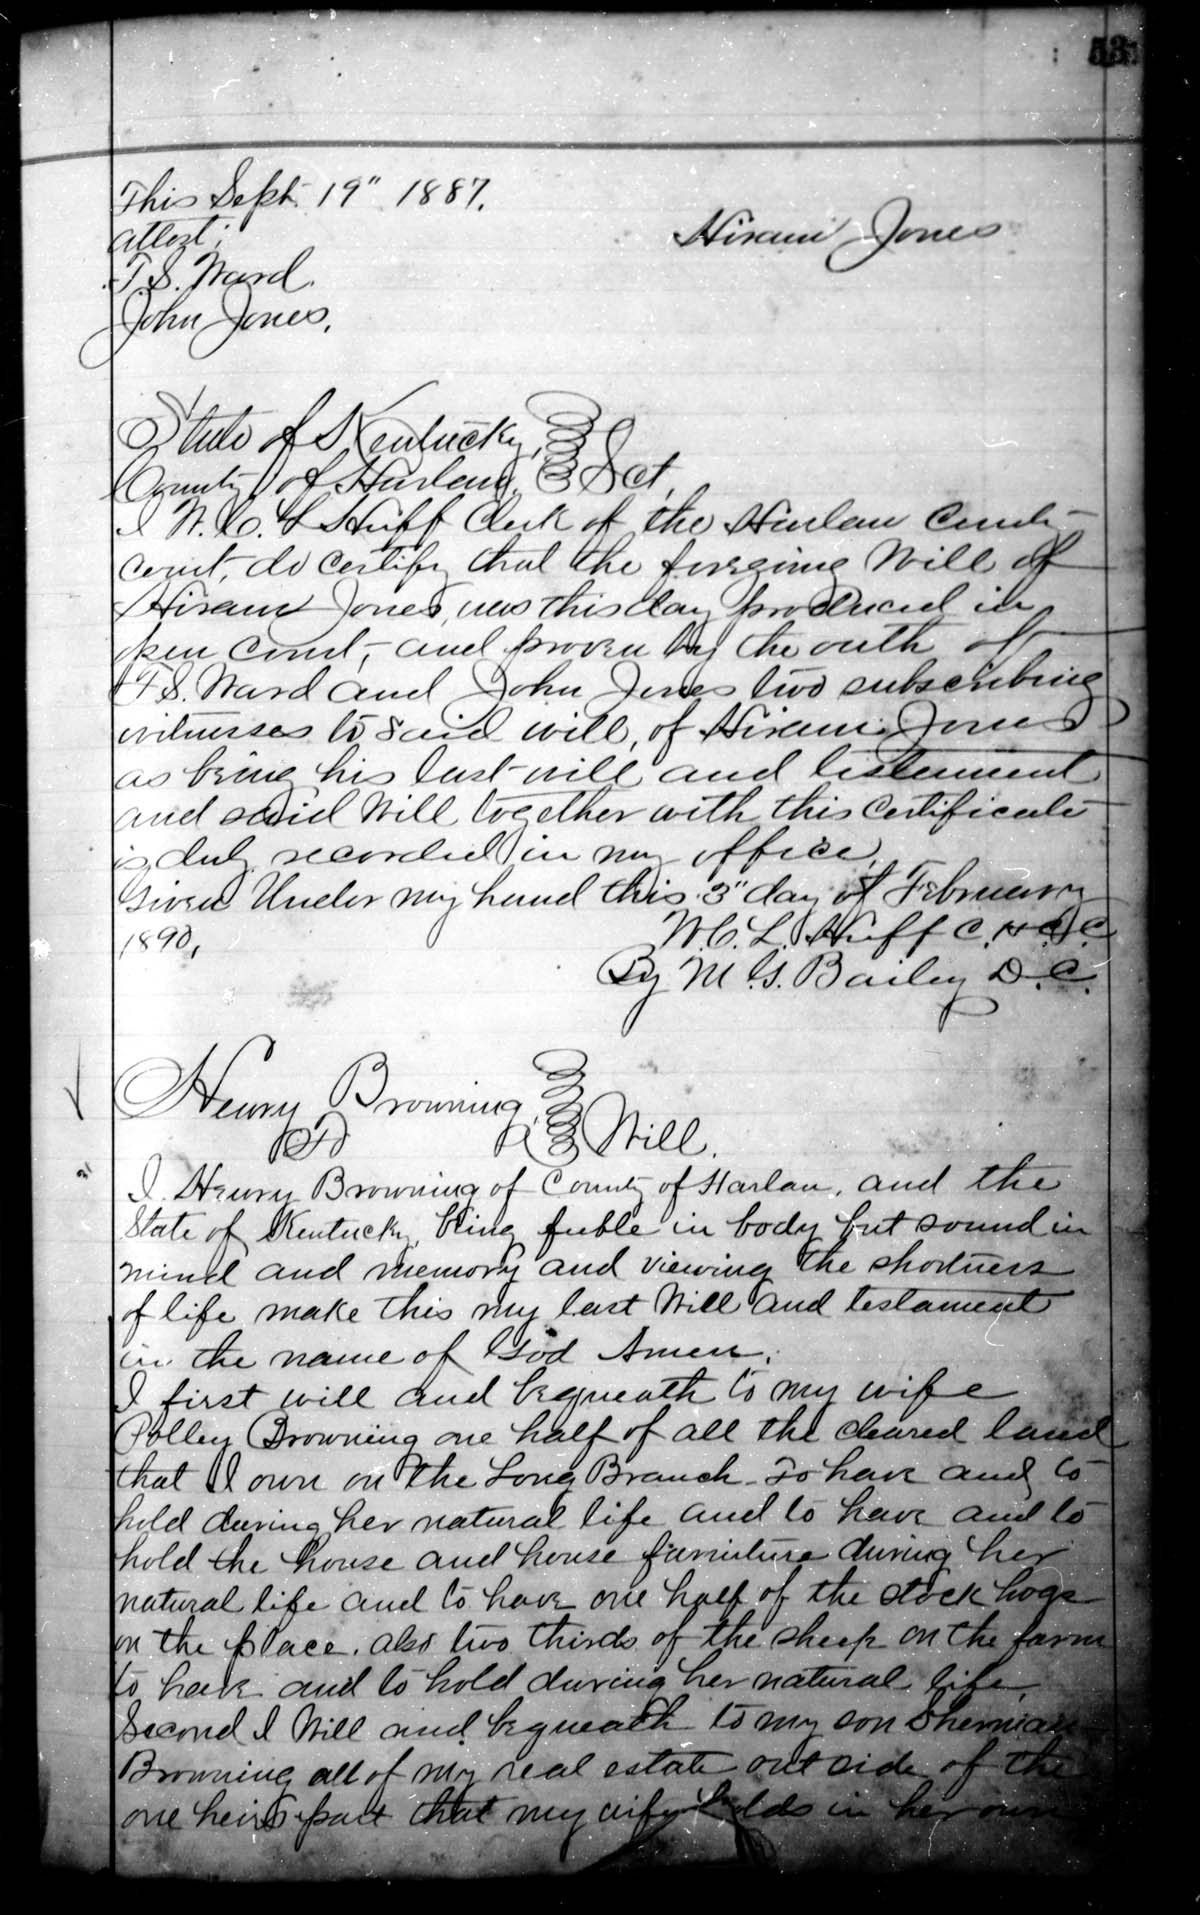 53
This Sept. 19" 1887.
Attest;
Hiram Jones
T.S. Ward.
John Jones.
State of Kentucky,
County of Harlan, Sct,
I W.C. L Huff Clerk of the Harlan County
court, do certify that the foregoing Will of
Hiram Jones, was this day produced in
open court, and proven by the oath of
T.S. Ward and John Jones two subscribing
witnesses to said will, of Hiram Jones
as being his last will and testament
and said Will together with this certificate
is duly recorded in my office,
Given Under my hand this 3" day of February
1890,
W.C. L. Huff C.H.C.C
By M.G. Bailey D.C.
Henry Browning,
Will.
I. Henry Browning of County of Harlan, and the
State of Kentucky, being feeble in body but sound in
mind and memory and viewing the shortness
of life make this my last Will and testament
in the name of God Amen.
I first will and bequeath to my wife
Polley Browning one half of all the cleared land
that I own on the Long Branch To have and to
hold during her natural life and to have and to
hold the house and house furniture during her
natural life and to have one half of the stock hogs
on the place. also two thirds of the sheep on the farm
to have and to hold during her natural life,
Second I Will and bequeath to my son Sherman
Browning all of my real estate out side of the
one heirs part that my wife holds in her own